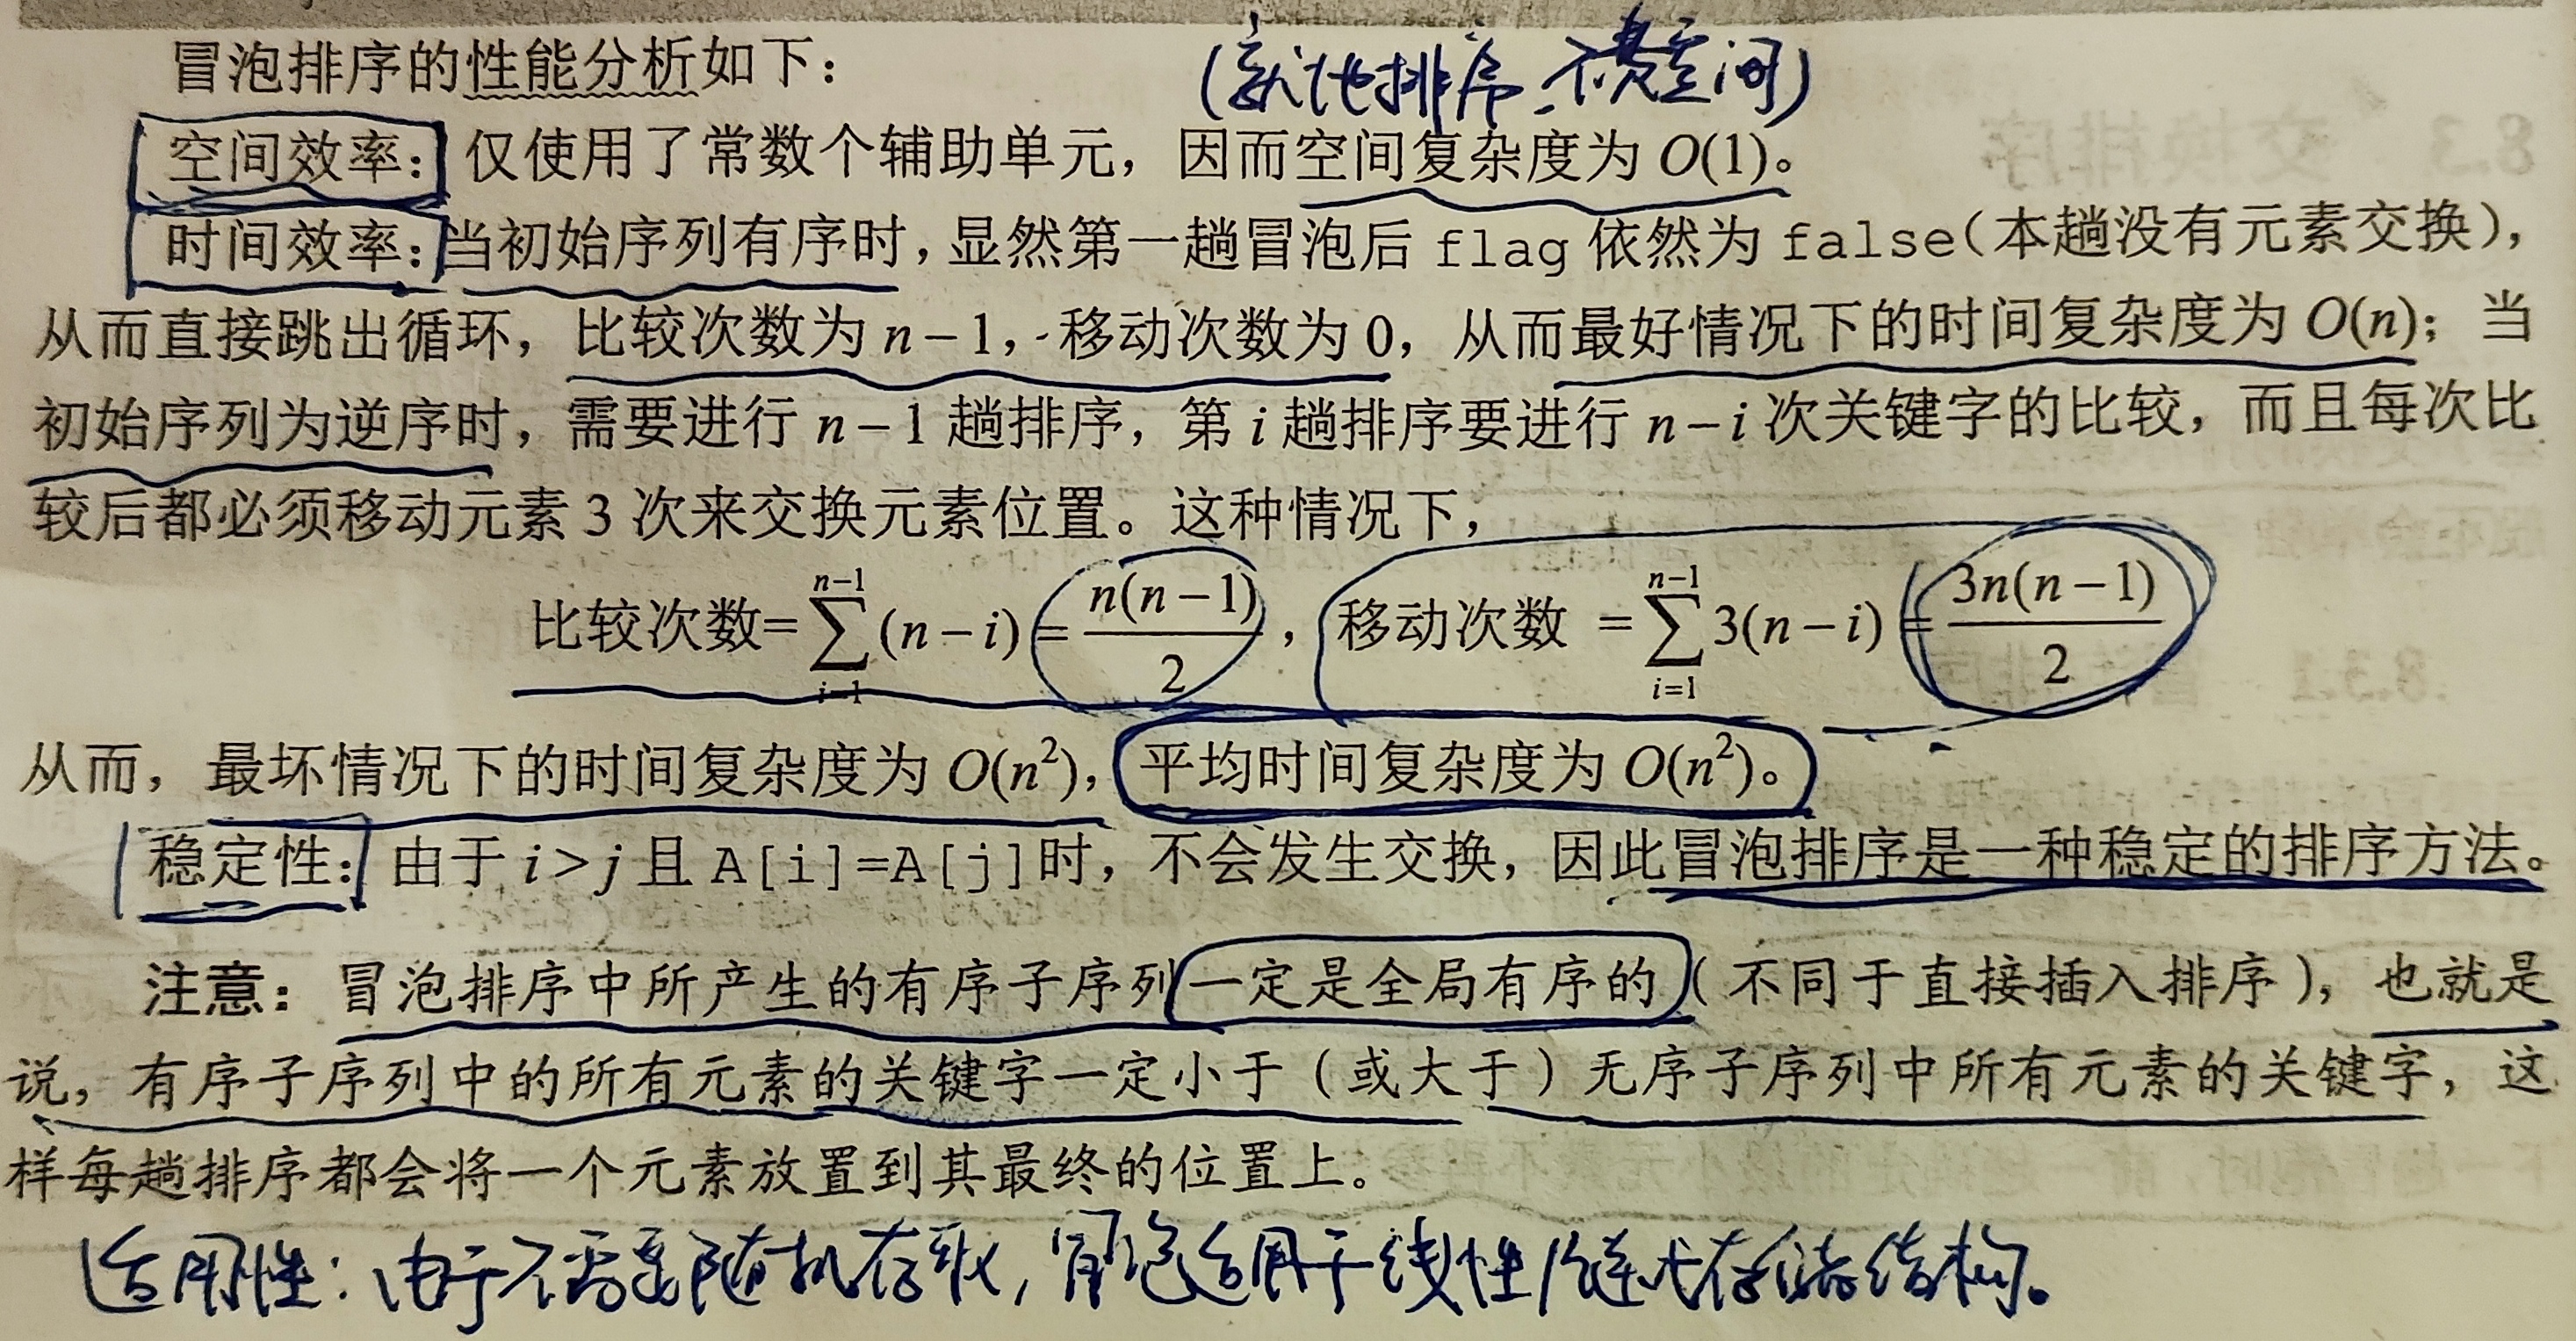 (就地排序,不费空间)
冒泡排序的性能分析如下：
空间效率：仅使用了常数个辅助单元，因而空间复杂度为 O(1)。
时间效率：当初始序列有序时，显然第一趟冒泡后 flag 依然为 false（本趟没有元素交换），
从而直接跳出循环，比较次数为 n－1，移动次数为 0，从而最好情况下的时间复杂度为 O(n)；当
初始序列为逆序时，需要进行 n－1 趟排序，第 i 趟排序要进行 n－i 次关键字的比较，而且每次比
较后都必须移动元素 3 次来交换元素位置。这种情况下，
比较次数=∑_{i=1}^{n−1}(n−i)=n(n−1)/2，移动次数 =∑_{i=1}^{n−1}3(n−i)=3n(n−1)/2
从而，最坏情况下的时间复杂度为 O(n²)，平均时间复杂度为 O(n²)。
稳定性：由于 i＞j 且 A[i]=A[j]时，不会发生交换，因此冒泡排序是一种稳定的排序方法。
注意：冒泡排序中所产生的有序子序列一定是全局有序的（不同于直接插入排序），也就是
说，有序子序列中的所有元素的关键字一定小于（或大于）无序子序列中所有元素的关键字，这
样每趟排序都会将一个元素放置到其最终的位置上。
适用性：由于不需要随机存取,冒泡适用于线性/链式存储结构。
8.3 交换排序